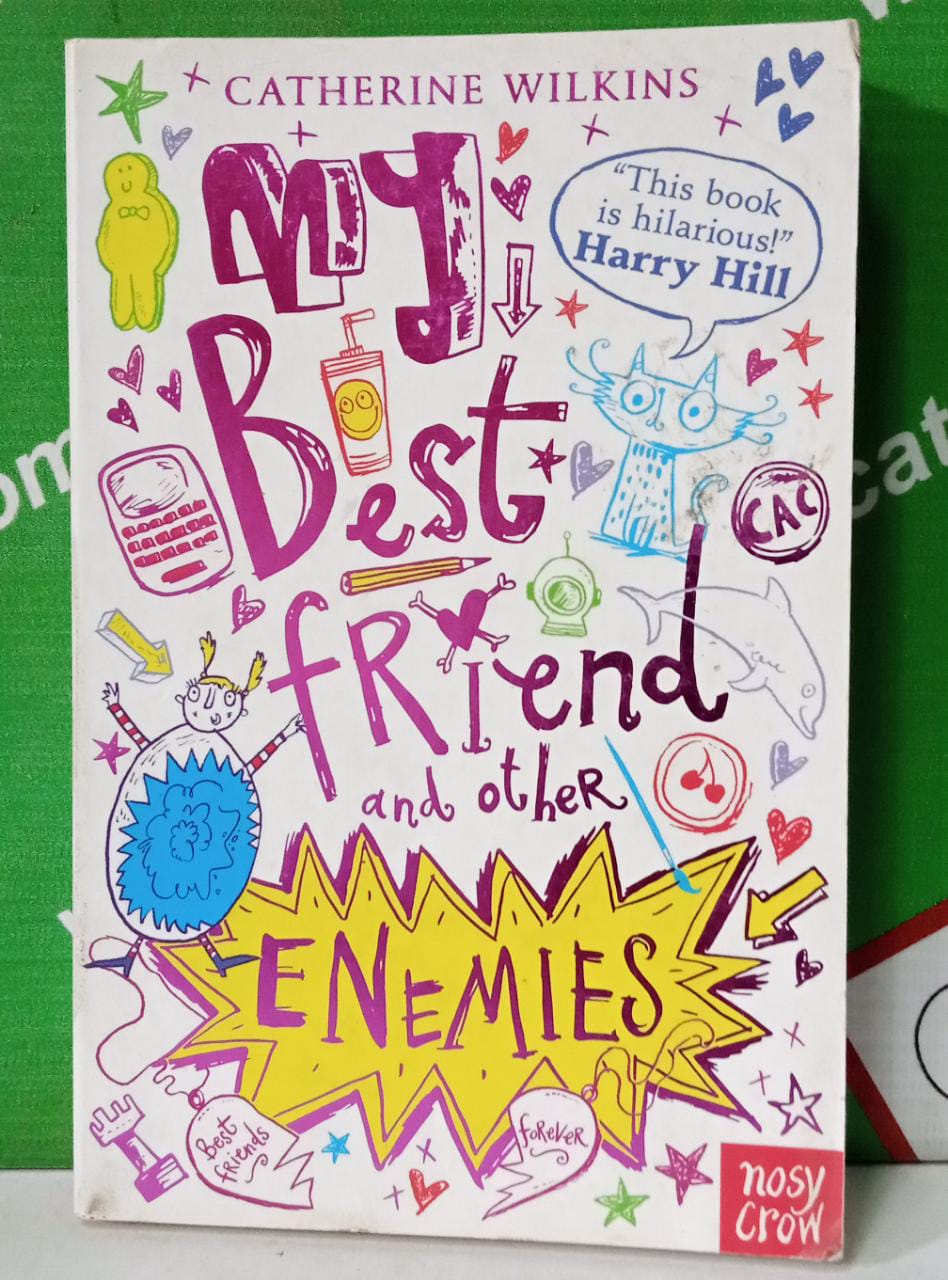 CATHERINE WILKINS
My
"This book
is hilarious!"
Harry Hill
Best
CAC
fRiend
and otheR
ENEMIES
Best
friends
foreveR
nosy
crow